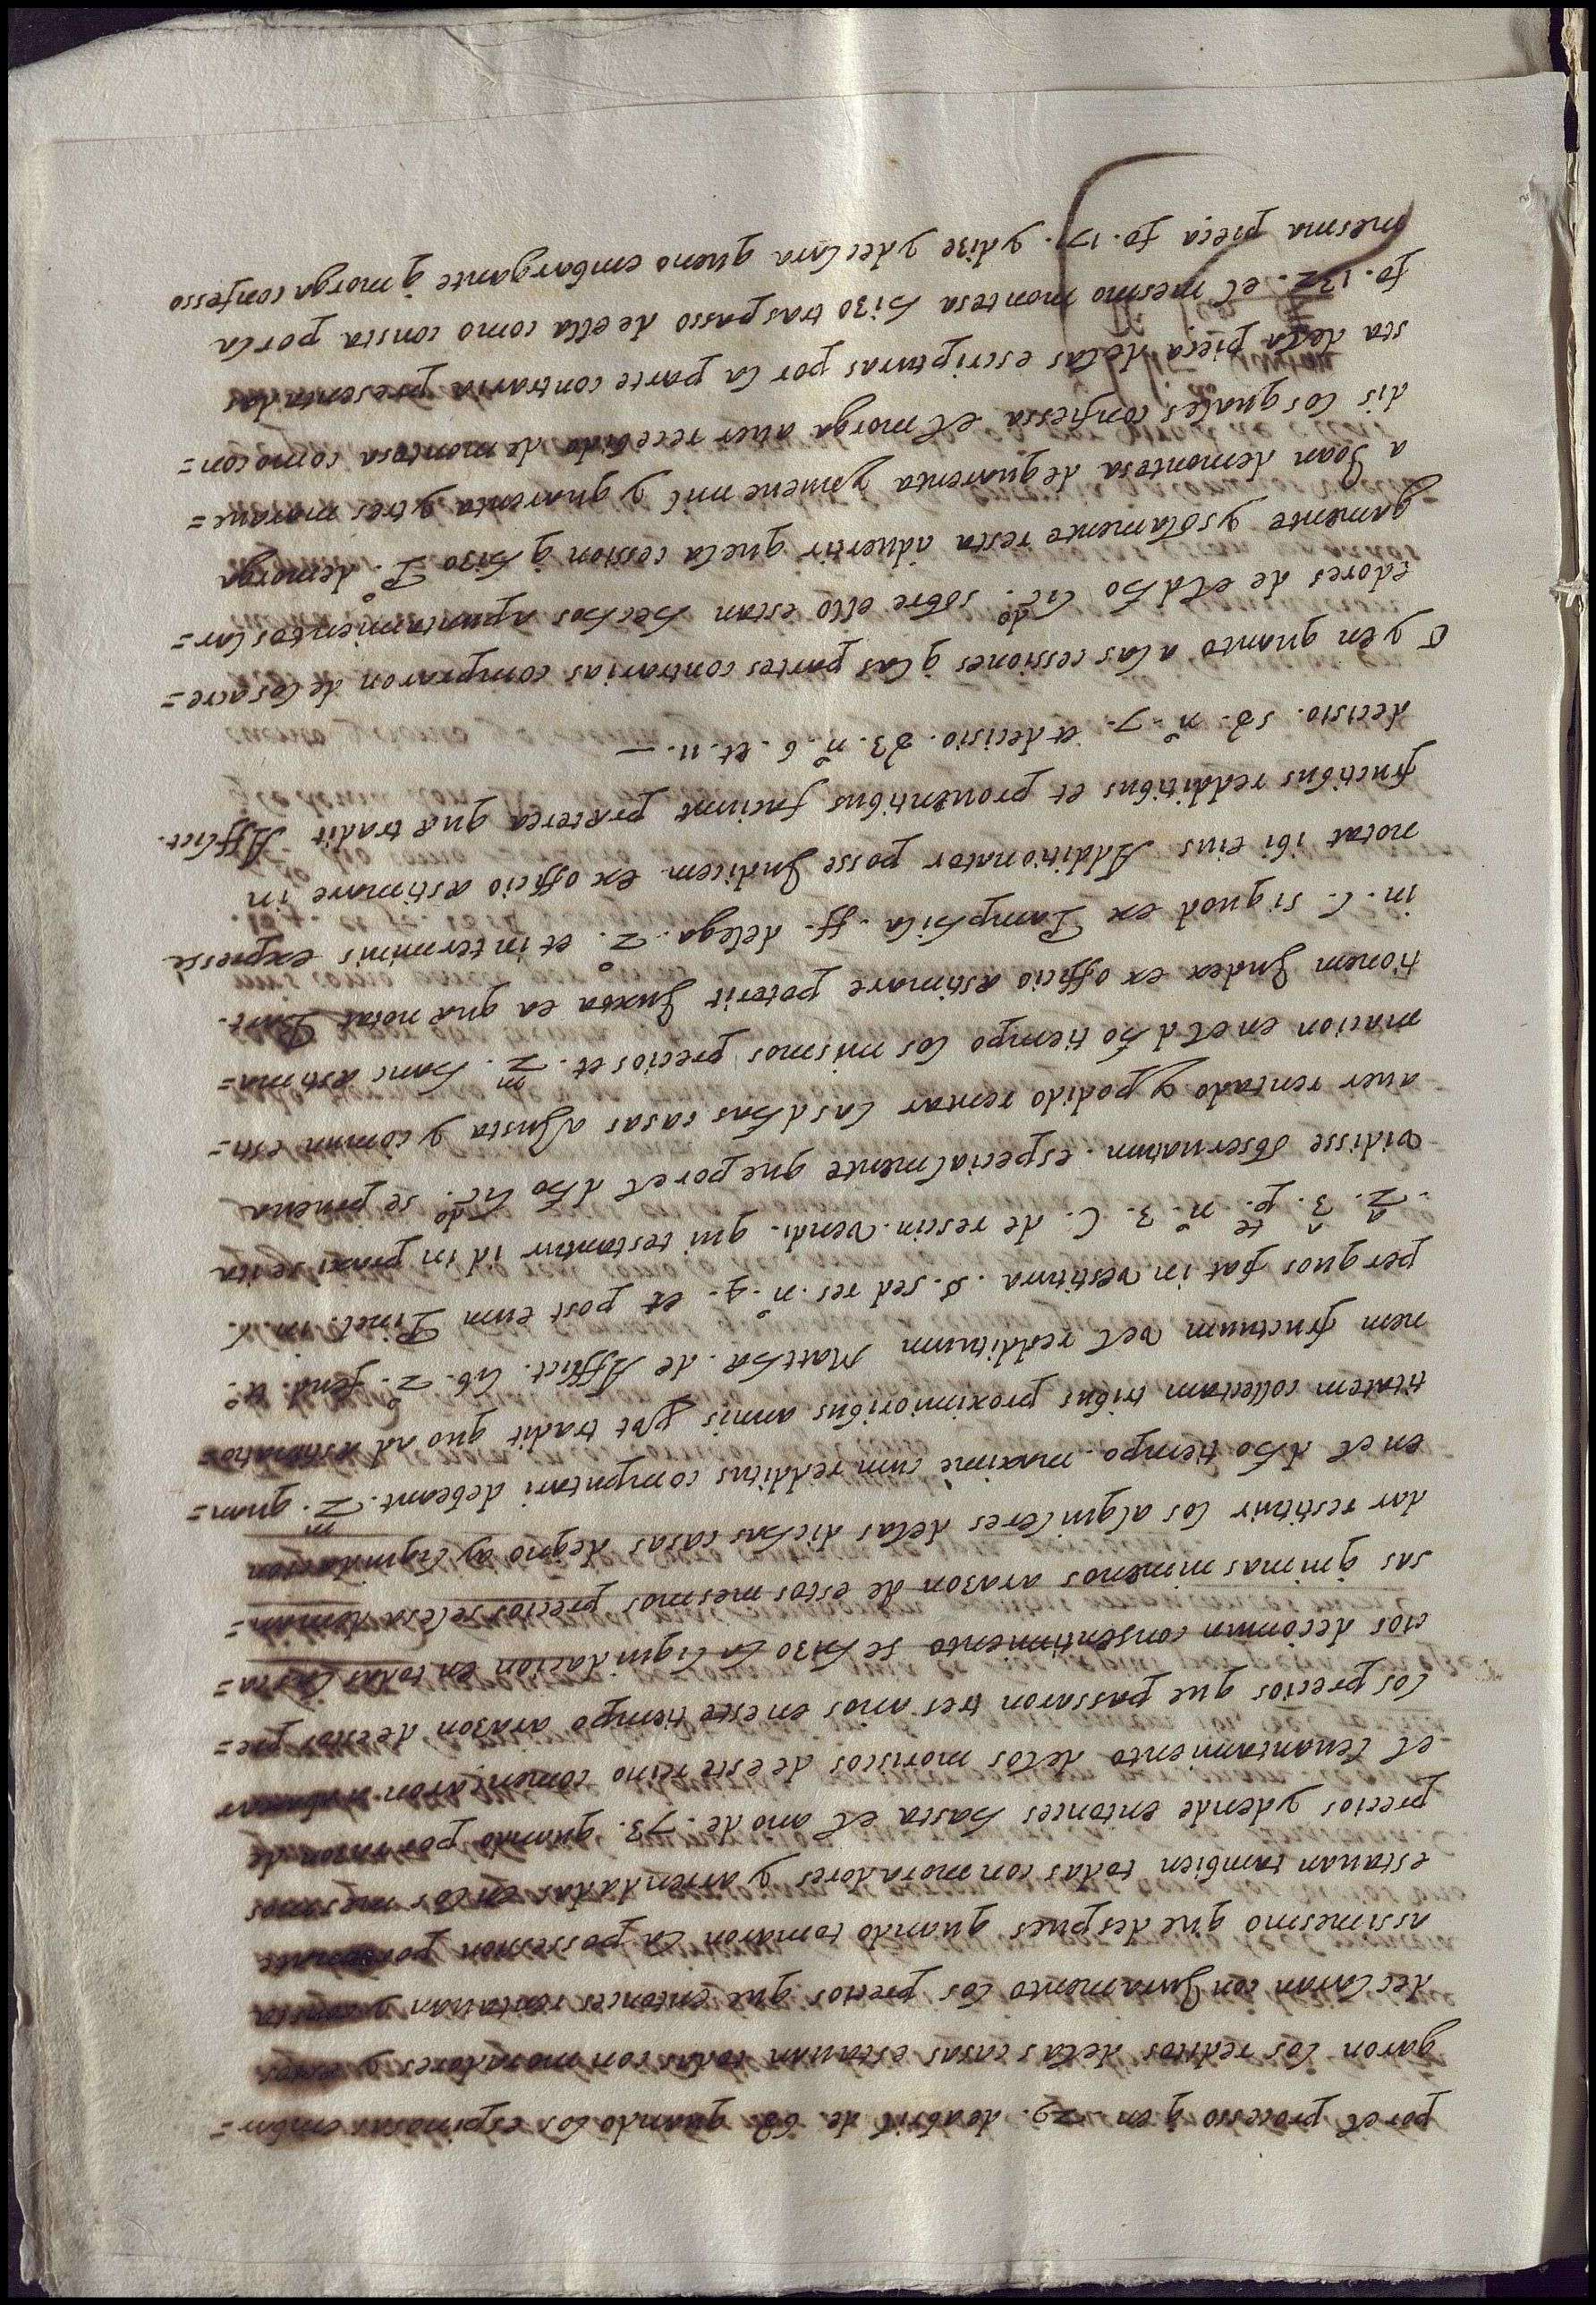 por el processo q̃ en .29. de abril de 68 quando los espinosas embar=
garon los reditos de las casas estauan todas con moradores y
declaran con Juramento los precios que entonces rentauan y consta
assimesmo que despues quando tomaron la possession
estauan tambien todas con moradores y arrendadas en los mesmos
precios y dende entonces hasta el ano de .73. quando por razon de
el leuantamiento delos moriscos de este reino començaron a abaxar
los precios que passaron tres anos en este tiempo arazon de estos pre=
cios de comun consentimiento se hizo la liquidacion en todas las ca=
sas q̃ nimas nimenos arazon de estos mesmos precios se les a de man=
dar restituir los alquileres delas dichas casas deq̃ no ay liquidacion
en el dho tiempo. maxime cum redditus computari debeant. 2.m quan=
titatem collectam tribus proximioribus annis vt tradit quo ad æstimatio=
nem fructuum vel reddituum Matthæ. de Afflict. lib. 2.º feud. tt.º
per quos fiat in vestitura. §. sed res. n.º 4. et post eum Pinel. in. l.
.2.ª 3.ª p.te n.º 3. C. de rescin. vendi. qui testantur id in praxi se ita
vidisse obseruatum. especialmente que por el dho lic.do se prueua
auer rentado y podido rentar las dhas casas a Justa y comun esti=
macion en el dho tiempo los mismos precios et. 2.m hanc æstima=
tionem Judex ex officio æstimare poterit Juxta ea quæ notat Bart.
in. l. si quod ex Pamphila. ff. de lega. 2.º et in terminis expresse
notat ibi eius Additionator posse Judicem ex officio æstimare in
fructibus redditibus et prouentibus faciunt præterea quæ tradit Afflict.
decisio. 58. n.º 7. et decisio. 83. n.º 6. et. 11. —
σ y en quanto a las cessiones q̃ las partes contrarias compraron de los acre=
edores de el dho lic.do sobre ello estan hechos apuntamientos lar=
gamente y solamente resta aduertir que la cession q̃ hizo P.º de morga
a Joan de montesa de quarenta y nueue mil y quarenta y tres maraue=
dis los quales confiessa el morga auer recebido de montesa como con=
sta dela pieça delas escripturas por la parte contraria presentadas
fo. 132. el mesmo montesa hizo traspasso de ella como consta por la
mesma pieça fo. 17. y dize y declara que no embargante q̃ morga confesso